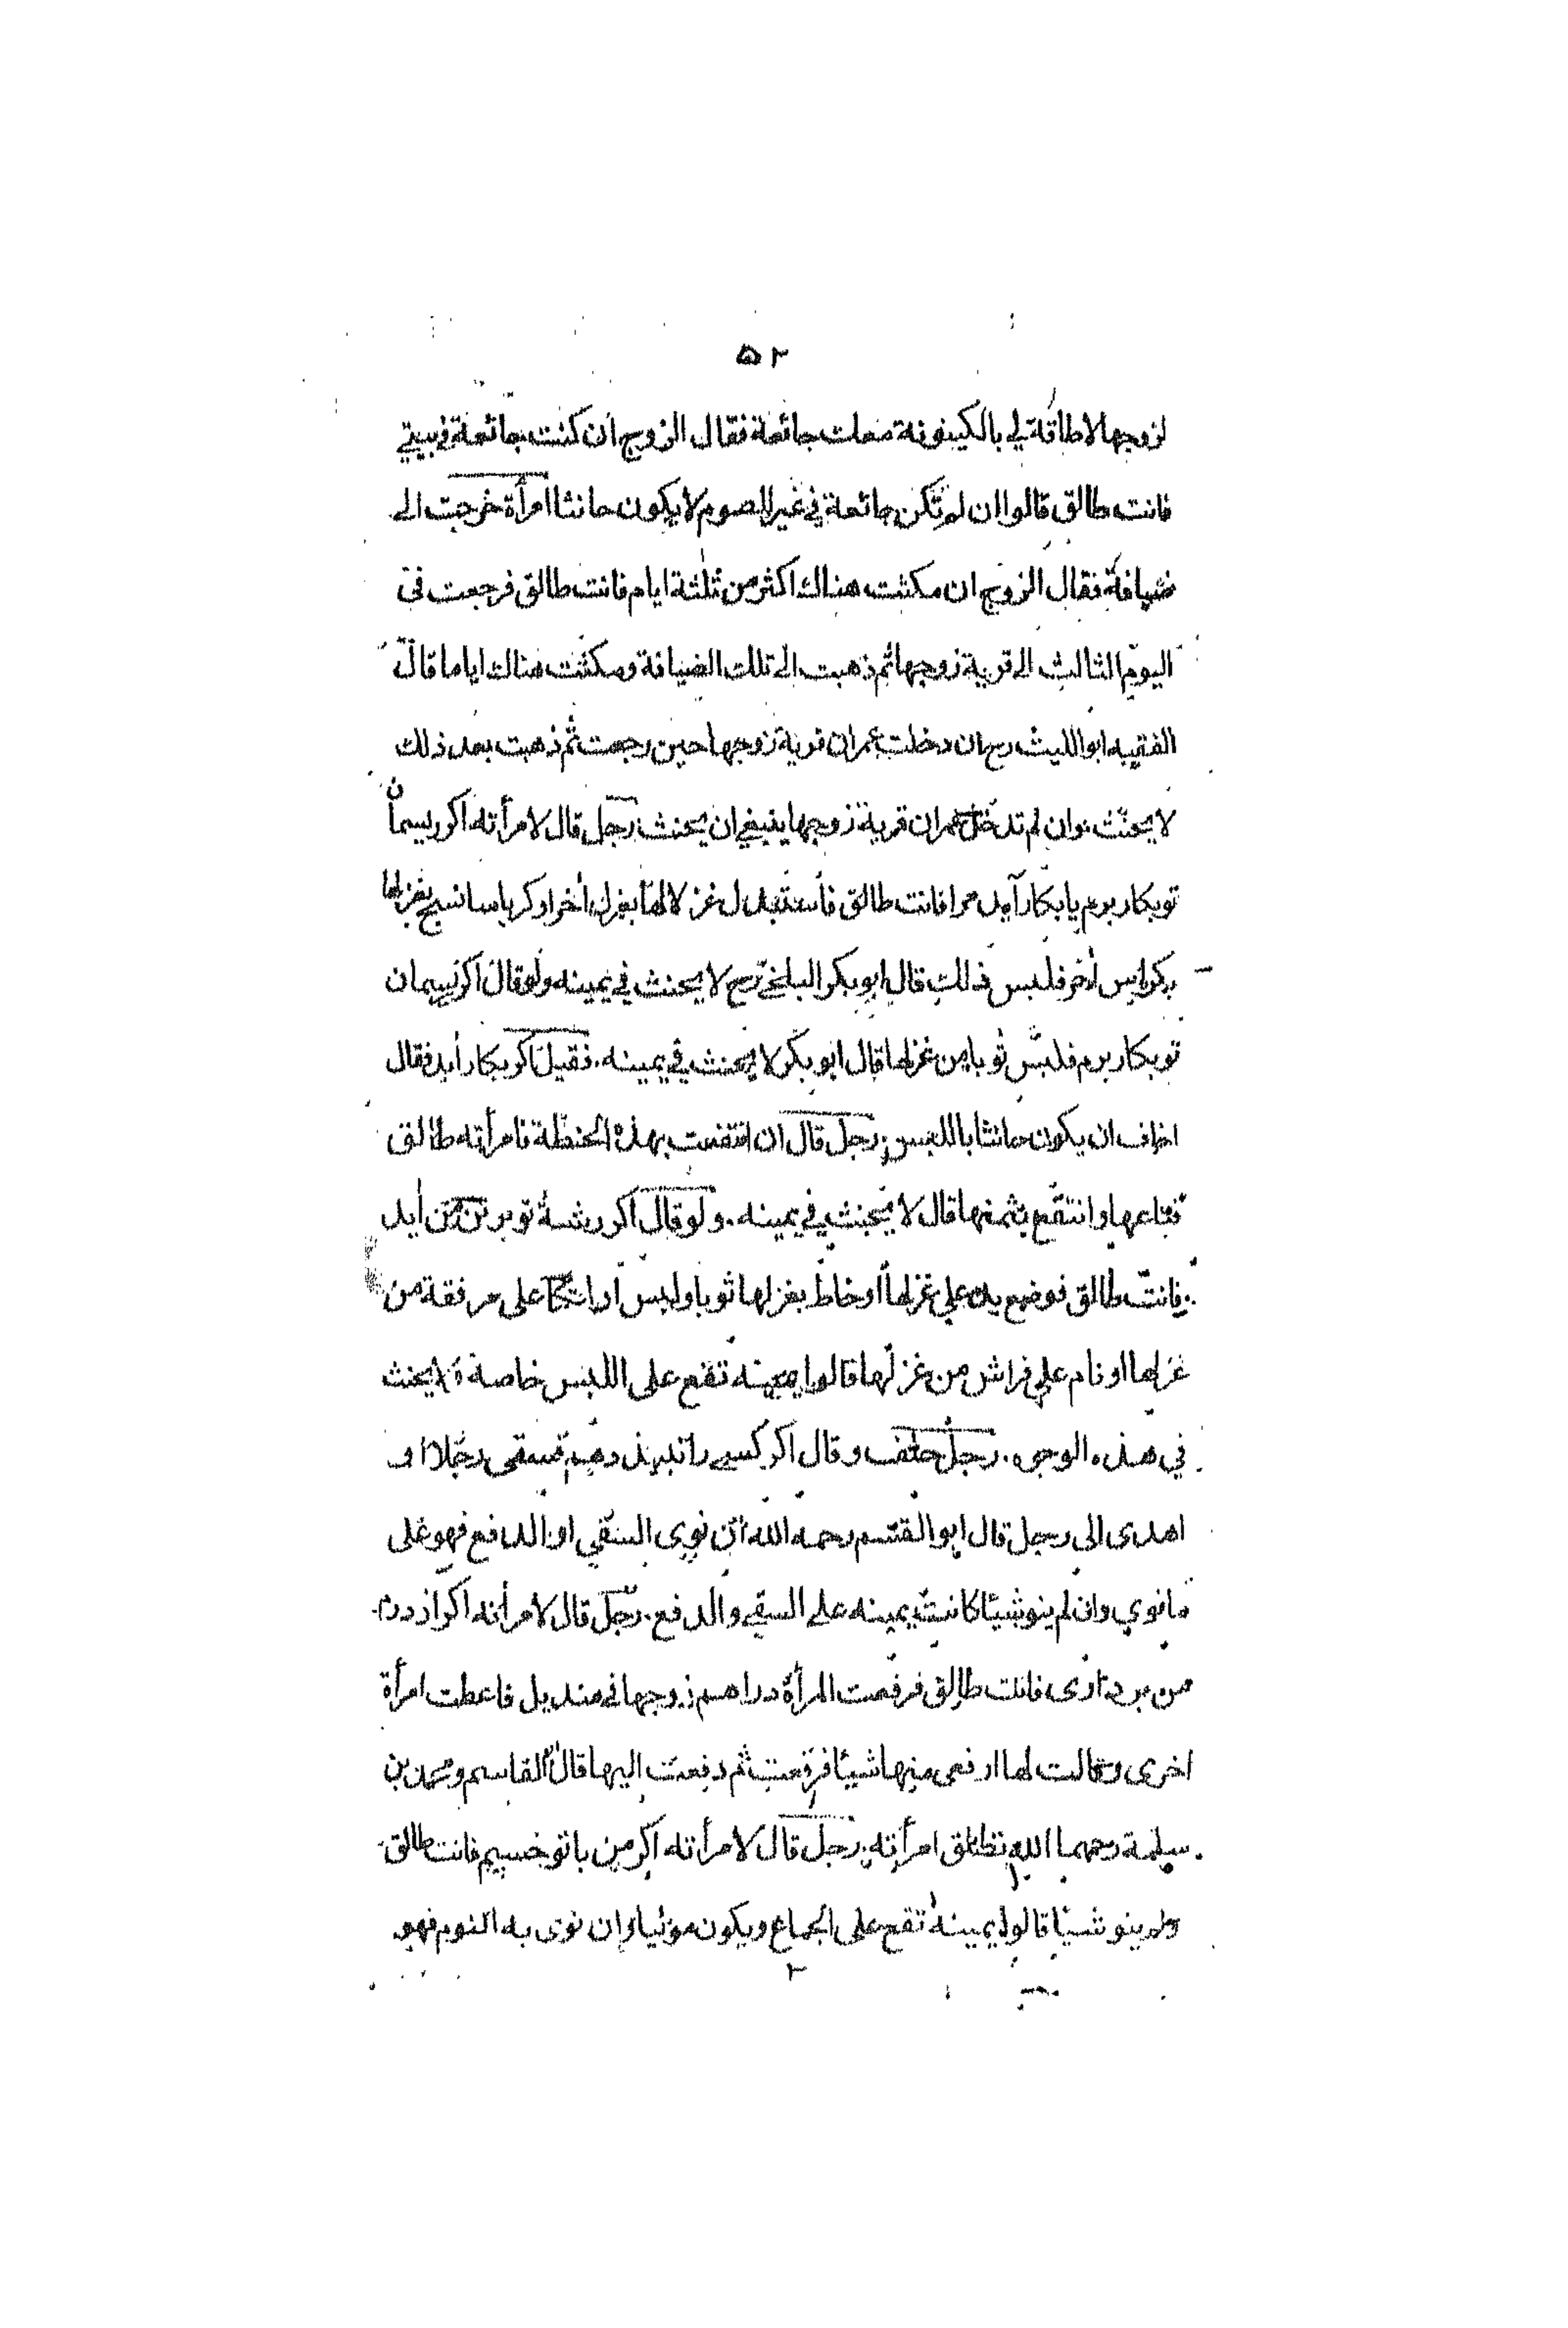 ٥٢
لزوجها لا طاقة لي بالكينونة معك جائعة فقال الزوج ان كنت جائعة في بيتي
فانت طالق قالوا ان لم تكن جائعة في غير الصوم لا يكون حانثا امرأة خرجت الى
ضيافة فقال الزوج ان مكثت هناك اكثر من ثلثة ايام فانت طالق فرجعت في
اليوم الثالث الى قرية زوجها ثم ذهبت الى تلك الضيافة ومكثت هناك اياما قال
الفقيه ابو الليث رح ان دخلت عمران قرية زوجها حين رجعت ثم ذهبت بعد ذلك
لا يحنث وان لم تدخل عمران قرية زوجها ينبغي ان يحنث رجل قال لامرأته اكر ريسمان
تو بكار برم يا بكار آيد مرا فانت طالق فاستبدل غزلا لها بغزل أخر او كرباسا نسج بغزلها
بكرابيس أخر فلبس ذلك قال ابو بكر البلخي رح لا يحنث في يمينه ولو قال اكر ريسمان
تو بكار برم فلبس ثوبا من غزلها قال ابو بكر لا يحنث في يمينه. فقيل اكر بكار أيد فقال
اخاف ان يكون حانثا باللبس رجل قال ان انتفعت بهذه الحنطة فامرأته طالق
فباعها وانتفع بثمنها قال لا يحنث في يمينه. ولو قال اكر رشتۀ تو بر تن من أيد
فانت طالق فوضع يده على غزلها او خاط بغزلها ثوبا ولبس او اتكأ على مرفقة من
غزلها او نام على فراش من غزلها قالوا يمينه تقع على اللبس خاصة لا يحنث
في هذه الوجوه. رجل حلف وقال اكر كسے را نبيذ دهم فسقى رجلا او
اهدى الى رجل قال ابو القسم رحمه الله ان نوى السقي او الدفع فهو على
ما نوي وان لم ينو شيئا كانت يمينه على السقي والدفع. رجل قال لامرأته اكر از درم
من بردارى فانت طالق فرفعت المرأة دراهم زوجها في منديل فاعطت امرأة
اخرى وقالت لها ارفعى منها شيئا فرفعت ثم دفعت اليها قال القاسم ومحمد بن
سلمة رحمهما الله تطلق امرأته. رجل قال لامرأته اكر من با تو خسپم فانت طالق
ولم ينو شيئا قالوا يمينه تقع على الجماع ويكون موليا وان نوى به النوم فهو